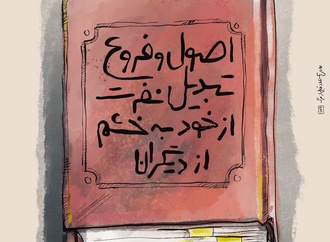 اصول و فروع
تبدیل نفرت
از خود به خشم
از دیگران